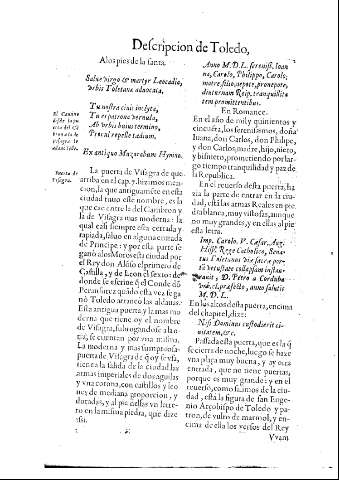 Descripcion de Toledo,
A los pies de la santa.
Salue virgo & martyr Leocadia,
vrbis Toletana aduocata,
Tu nostra ciuis inclyta,
Tu es patrona vernula,
Ab vrbis huius termino,
Procul repelle tædium.
Ex antiquo Muzarabum Hymno.
Puerta de
Visagra.
La puerta de Visagra de que
arriba en el cap. y hizimos men-
cion, la que antiguamẽte en esta
ciudad tuuo este nombre, es la
que cae entre la del Cambron y
la de Visagra mas moderna: la
qual casi siempre esta cerrada y
tapiada, saluo en alguna entrada
de Principe: y por esta parte se
ganò a los Moros esta ciudad por
el Rey don Alonso el primero de
Castilla, y de Leon el sexto: de
donde se escriue q̃ el Conde dõ
Peransurez quãdo esta vez se ga
nò Toledo arranco las aldauas.
Esta antigua puerta y la mas mo
derna que tiene oy el nombre
de Visagra, subrogandose a la o-
tra, se cuentan por vna misma.
La moderna y mas sumptuosa
puerta de Visagra de q̃ oy se vsa,
tiene a la salida de la ciudad las
armas imperiales de dos aguilas
y vna corona, con castillos y leo
nes de mediana proporcion, y
dorados, y al pie dellas vn letre-
ro en la misma piedra, que dize
assi.
Anno M.D.L. sereniss. Ioan
na, Carolo, Philippo, Carolo,
matre, filio, nepote, pronepote,
diuturnam Reip. tranquillita
tem promittentibus.
En Romance.
En el año de mil y quinientos y
cincuẽta, los serenissimos, doña
Iuana, don Carlos, don Philipe,
y don Carlos, madre, hijo, nieto,
y bisnieto, prometiendo por lar-
go tiempo tranquilidad y paz de
la Republica.
En el reuerso desta puerta, ha
zia la parte de entrar en la ciu-
dad, estã las armas Reales en pie-
dra blanca, muy vistosas, aunque
no muy grandes, y en ellas al pie
esta letra.
Imp. Carolo. V. Cæsar. Aug.
Hisp. Rege Catholico, Sena-
tus Toletanus viæ sacræ por-
tã vetustate collapsam instau-
rauit, D. Petro a Corduba
M.D.L.
En los altos desta puerta, encima
del chapitel, dize:
Nisi Dominus custodierit ci-
uitatem, &c.
Passada esta puerta, que es la q̃
se cierra de noche, luego se haze
vna plaça muy buena, y ay otra
entrada, que no tiene puertas,
porque es muy grande: y en el
reuerso, como salimos de la ciu-
dad, està la figura de san Euge-
nio Arçobispo de Toledo y pa-
tron, de vulto de marmol, y en-
cima de ella los versos del Rey
Vvam.